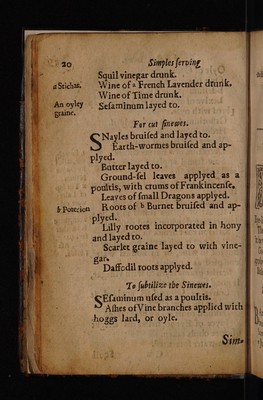 20 Simples serving
Squil vinegar drunk.
a Stichas. Wine of a French Lavender drunk.
Wine of Time drunk.
An oyley Sesaminum layed to.
graine.
For cut sinewes.
SNayles bruised and layed to.
Earth-wormes bruised and ap-
plyed.
Butter layed to.
Ground-sel leaves applyed as a
poultis, with crums of Frankincense.
Leaves of small Dragons applyed.
b Poterion Roots of b Burnet bruised and ap-
plyed.
Lilly rootes incorporated in hony
and layed to.
Scarlet graine layed to with vine-
gar.
Daffodil roots applyed.
To subtilize the Sinewes.
SEsaminum used as a poultis.
Ashes of Vine branches applied with
hoggs lard, or oyle.
Sim-